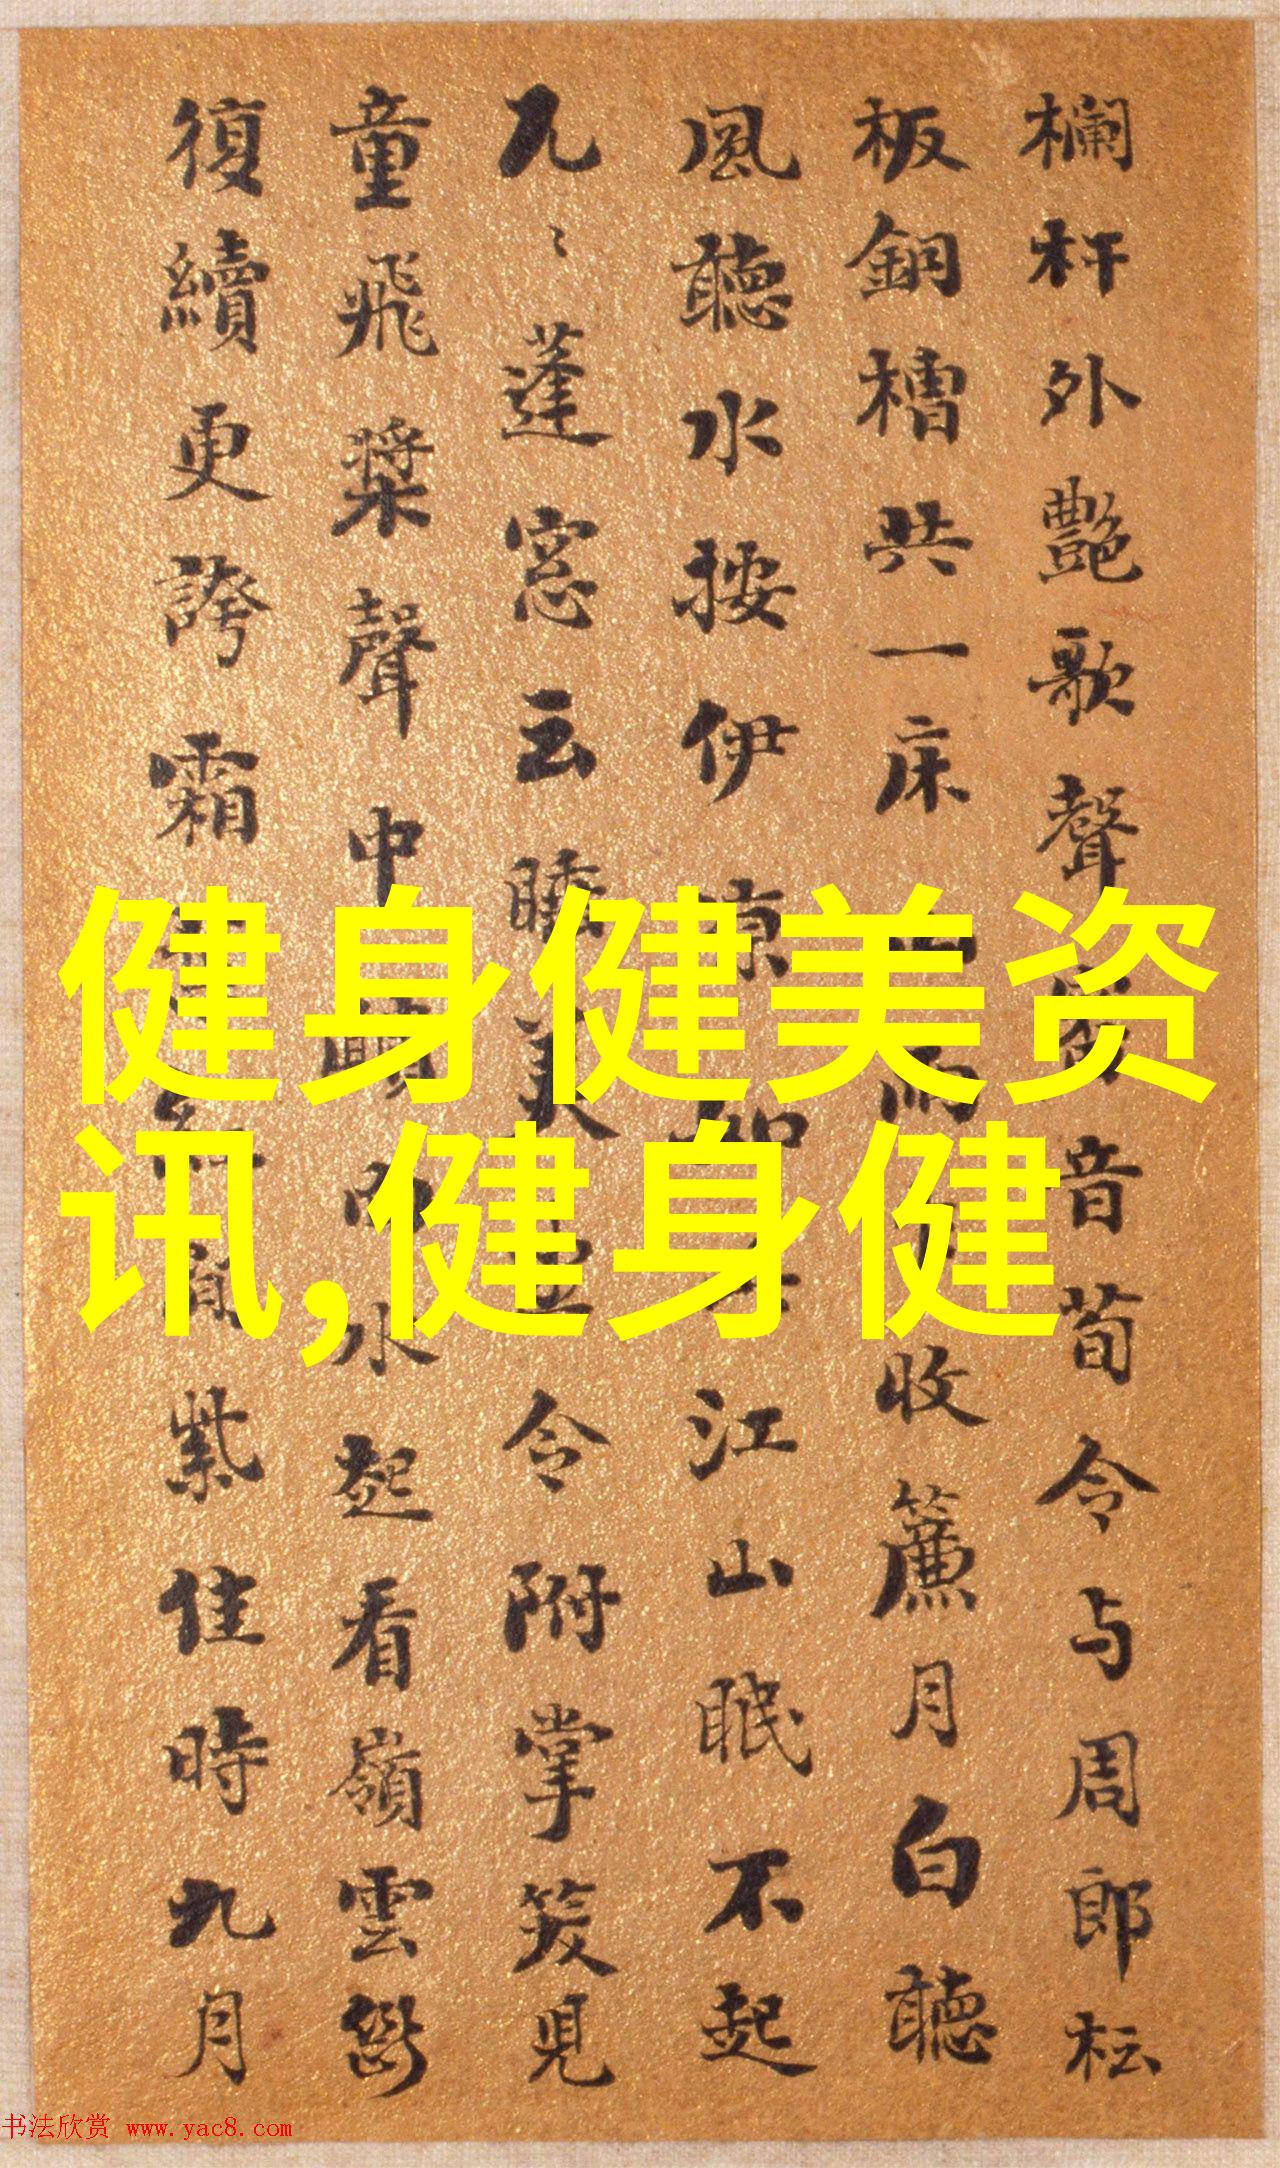 欄杆外艷歌聲音荀令与周郎枟
板銅槽共一床雨收簾月白聽
風聽水按伊凉如江山眠不起
兀〻蓬窓云睡美令附掌笑見
童飛槳聲中水起看嶺雲
復續更誇霜紫佳時九月
健身健美资
讯,健身健
书法欣赏 www.yac8.com